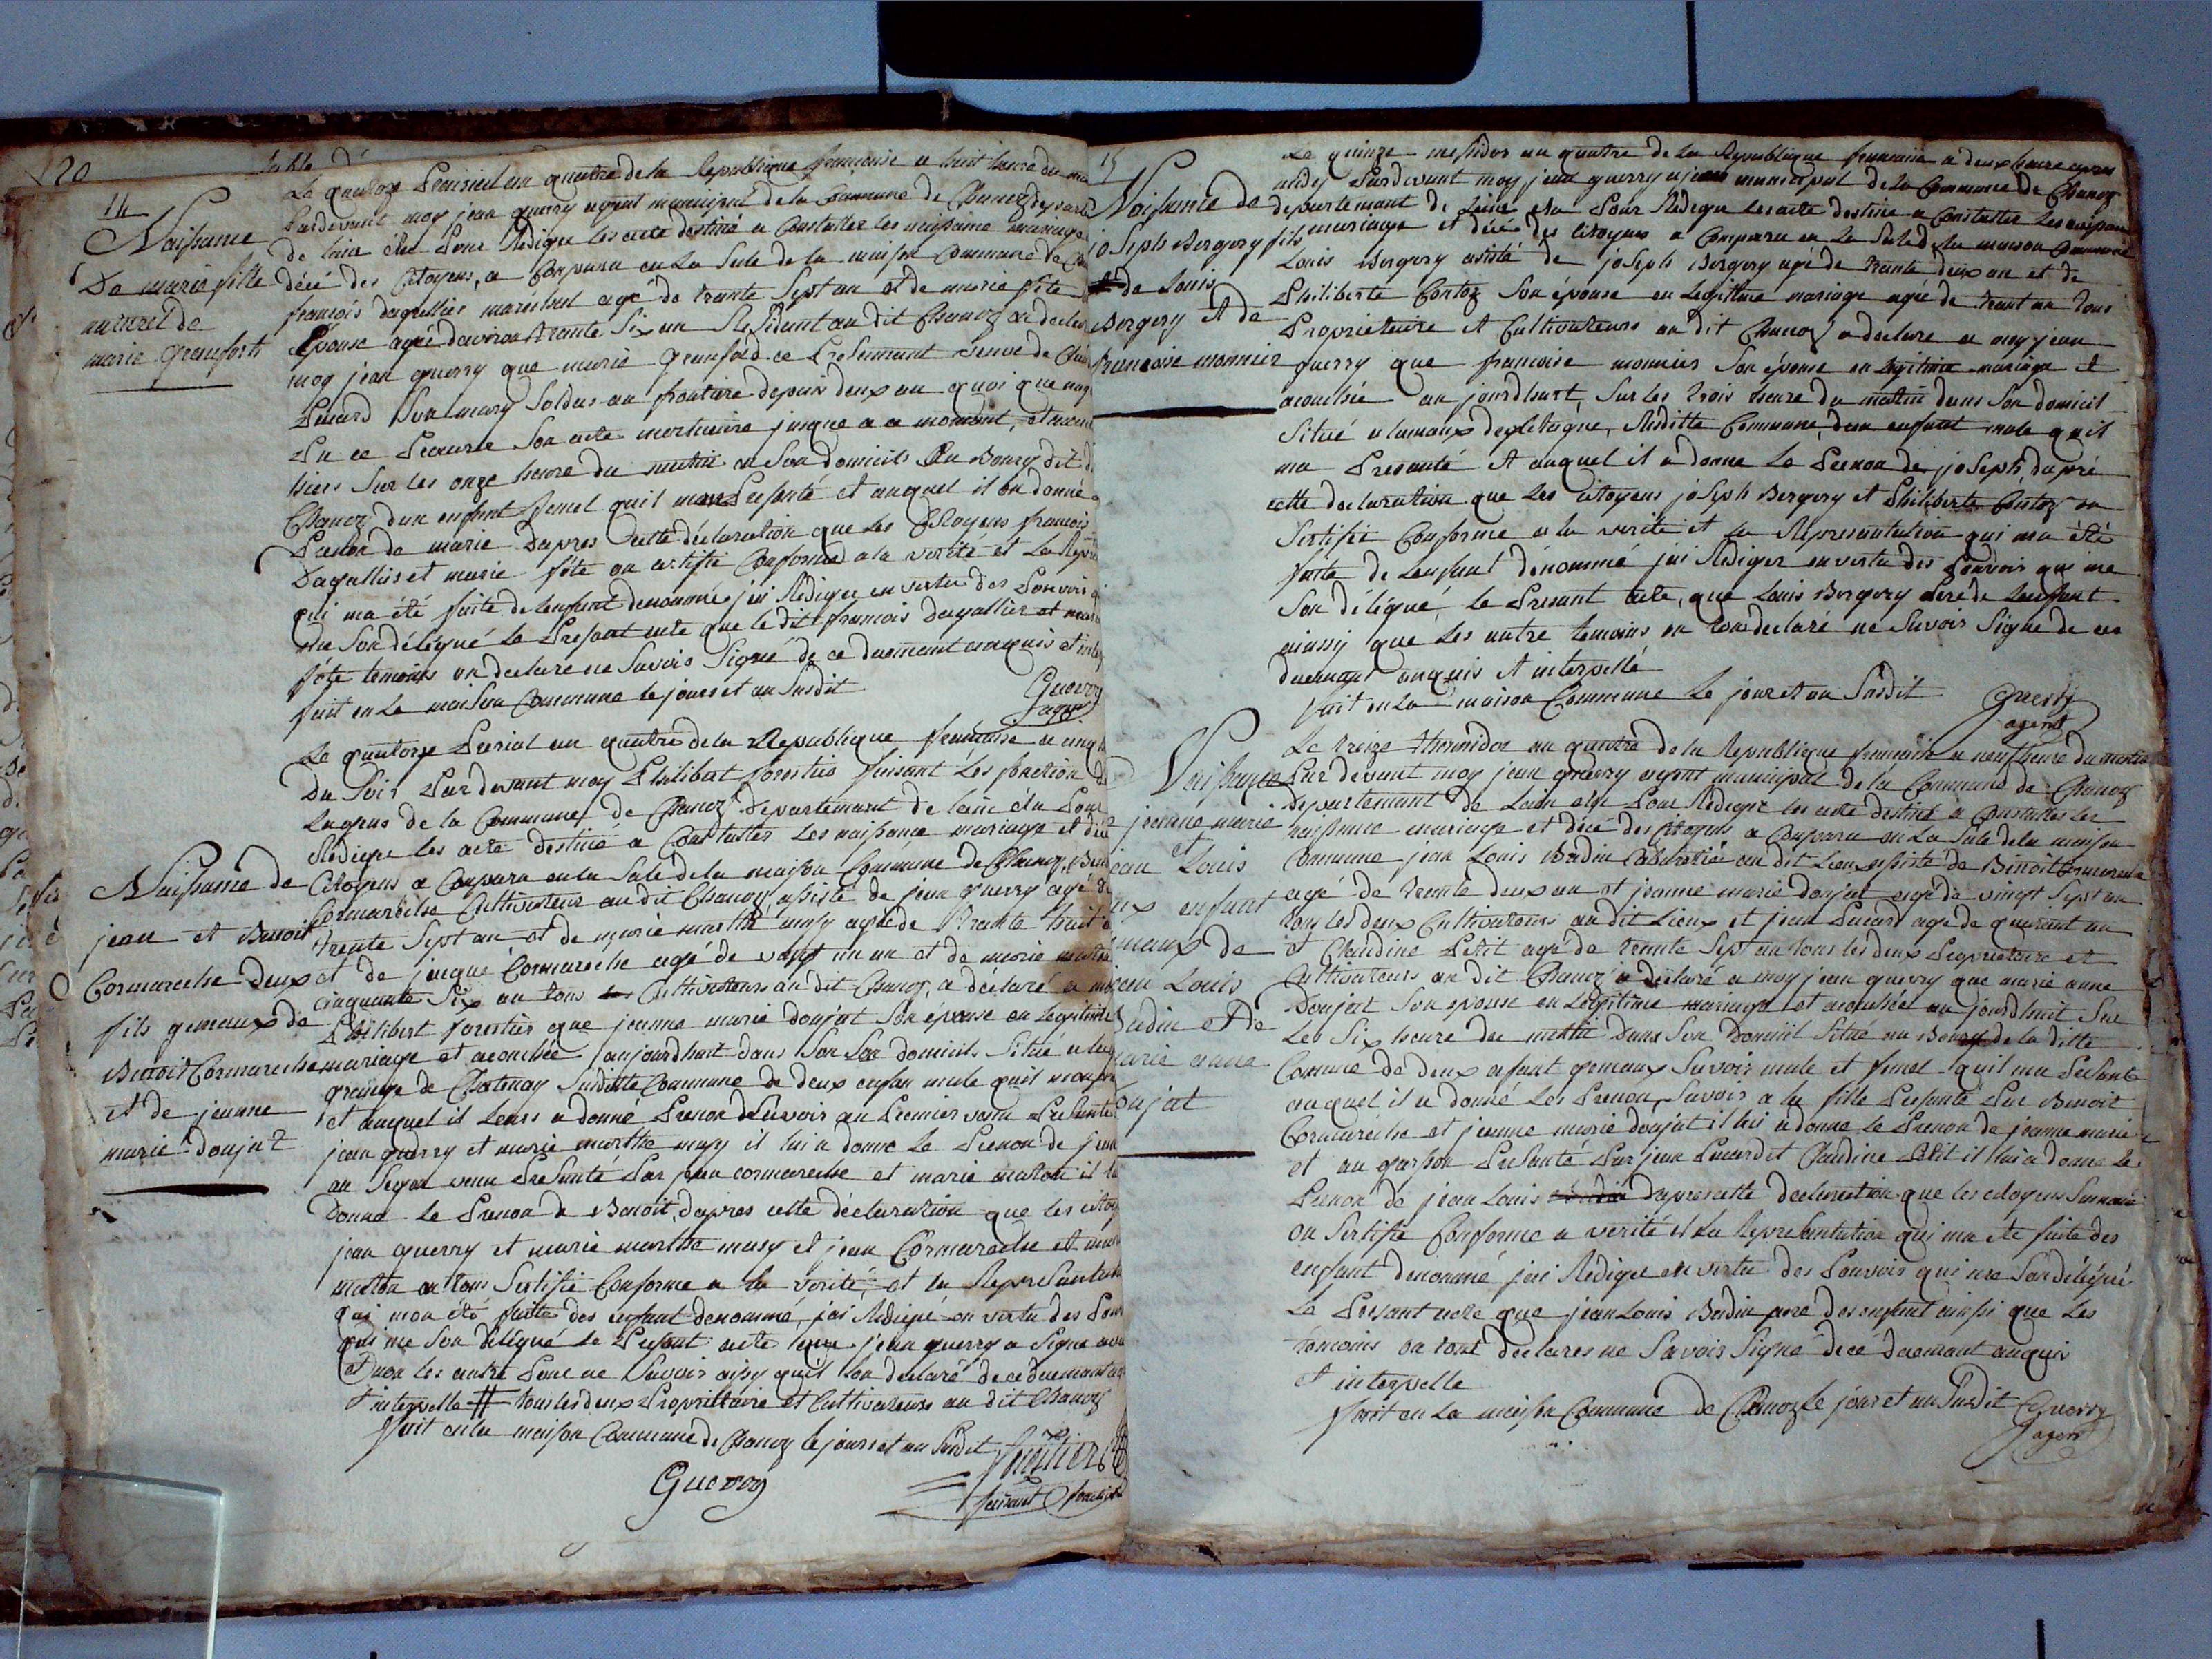 120
14
Naissance
De marie fille
naturel de
marie granfort
Le quatorze Prairial an quatre de la Republique francaise a huit heure du
Pardevant moy jean guerry agent municipal de la Commune de Chanoz departe
de lain élu Pour Rédiger les acte destiné a Constatter les naissance mariage
décé des Citoyens, a Comparu en La Sale de la maison Commune de
françois dagallier marechal agé de trante Sept an et de marie fête
Epouse agé daviron trante Six an Résidant au dit Chanoz on declaré
moy jean guerry que marie granford ce Presumant veuve de
Picard Son mary Soldas au frontiere depuis deux an quoi que
Pu ce Procurre Son acte mortuaire jusque a ce moment, et
hiers Sur les onze heure du matin a Son domicils Du Bourg dit
Chanoz dun enfant femel quil mon Presenté et auquel il on donné
Prenon de marie Dapres cette déclaration que les Citoyens francois
Dagallier et marie fête on certifié Conforme a la vérité et La
qui ma été faite de lenfant denommé jai Rédiger en vertu des Pouvoirs
Son délégué Le Present acte que le dit francois dagallier et
fête temoins on declare ne Savoir Signé de ce duement enquis et
fait en la maison Commune le jours et an Susdit
Guerry
agent
Naissance de
jean et Benoit
Cormareche deux
fils gemeaux de
Benoit Cormareche
et de jeanne
marie donjat
Le quatorze Prerial an quatre de la Republique francaise a cinq
Du Soir Par devant moy Philibert forestier faisant les fonction
Lagens de la Commune de Chanoz departement de lain élu Pour
Rediger les acte destiné a Constatter Les naissance mariage et
Citoyens a Comparu en la Sale de la maison Commune de Chanoz,
Cormareche Cultivateur au dit Chanoz assisté de jean guerry agé
trente Sept an et de marie marthe musy agé de trante huit
et de jacque Cormareche agé de vingt un an et de marie
cinquante Six an tous Cultivateurs au dit Chanoz, a déclaré a
Philibert forestier que jeanne marie donjat Son épouse en Légitime
mariage et acouchée aujourdhuit dans Son Son domicils Situé a la
grange de Chatenay Sudditte Commune de deux enfan male quil
et auquel il Leurs a donné Prenon de Savoir au Premier venu Presente
jean guerry et marie marthe musy il lui a donné Le Prenon de jean
au Segon venu Presenté Par jean cormareche et marie il
Donné Le Prenon de Benoit, dapres cette déclaration que les
jean guerry et marie marthe musy et jean Cormareche et
on tous Sertifié Conforme a la vérité, et la
qui mon été faitte des enfant denommé, jai Rediger en vertu des
qui me Son déligué le Present acte jean guerry a Signé
et non les autre Pour ne Savoir aissy quil Lon declaré de ce duemant
et interpellé # tous les deux Proprietaire et Cultivateurs au dit Chanoz
fait en la maison Commune de Chanoz le jours et an Susdit
Guerry
faisant
15
Naissance de
joseph Bergery fils
de Louis
Bergery et de
francoise monnier
Le quinze messidor an quatre de La Republique francaise a deux heure apres
midy Pardevant moy jean guerry agent municipal de la Commune De Chanoz
departement de Laine élu Pour Rédiger Les acte destine a Constatter Les naissance
mariage et décé des Citoyens a Comparu en La Sale de la maison Commune
Louis Bergery asisté de joseph Bergery agé de trante deux an et de
Philiberte Contoz Son épouse en Legitime mariage agée de trant an tous
Proprietaire et Cultivateurs au dit Chanoz a declare a moy jean
guerry que francoise monnier Son épouse en Legitime mariage et
acouchée au jourdhuit, Sur les trois heure du matin dans Son domicil
Situé a lamaux Sudditte Commune, dun enfant male quil
ma Presanté et auquel il a donne Le Prenon de joseph, dapré
cette declaration que Les Citoyens joseph Bergery et Philiberte Contoz on
Sertifié Conforme a la verité et La Representation qui ma été
faite de Lenfant dénommé jai Rediger en vertu des Pouvoir qui me
Son délégué, Le Presant acte, que Louis Bergery Peré de Lenfant
ainssy que Les autre temoins on tous declaré ne Savoir Signé de ce
duemant enquis et interpellé
fait en La maison Commune Le jour et an Susdit
Guerry
agent
Naissance
jeanne marie
et
jean Louis
enfant
gemaux de
jean Louis
Badin et de
marie anne
donjat
Le treize thermidor an quatre de la Republique francaise a neuf heure du matin
Par devant moy jean guerry agent municipal de la Commune de Chanoz
Departement de Lain elu Pour Rediger les acte destiné a Constatter Les
naissance mariage et décé des Citoyens a Comparu en La Sale de la maison
Commune jean Louis Badin Cabaretié au dit Lieux assisté de Benoit Cormareche
agé de trante deux an et jeanne marie donjat agé de vingt Sept an
tous les deux Cultivateurs au dit Lieux et jean Picard agé de quarant an
et Claudine Petit agé de trente Sept an tous les deux Proprietaire et
Cultivateurs au dit Chanoz a déclaré a moy jean guerry que marie anne
Donjat Son epouse en Legitime mariage et acouchée au jourdhuit Sur
Les Six heure du matin Dans Son Domicil Situé au Bourg de la ditte
Comune de deux enfant gemaux Savoir male et femel quil ma Presanté
auquel il a donné Les Prenon, Savoir a la fille Presanté Par Benoit
Cormareche et jeanne marie donjat il lui a donné le Prenon de jeanne marie
et au garson Presanté Par jean Picard et Claudine Petit il lui a donné Le
Prenon de jean Louis dapres cette declaration que les citoyens Surnomé
on Sertifié Conforme a verité et La Representation qui ma été faite des
enfant denommé jai Rediger en vertu des Pouvoirs qui me Son délégué
Le Presant acte que jean Louis Badin pere des enfant ainssi que Les
témoins on tous déclares ne Savoir Signé de ce duemant enquis
et interpelle
fait en La maison Commune de Chanoz le jour et an Susdit
Guerry
agent